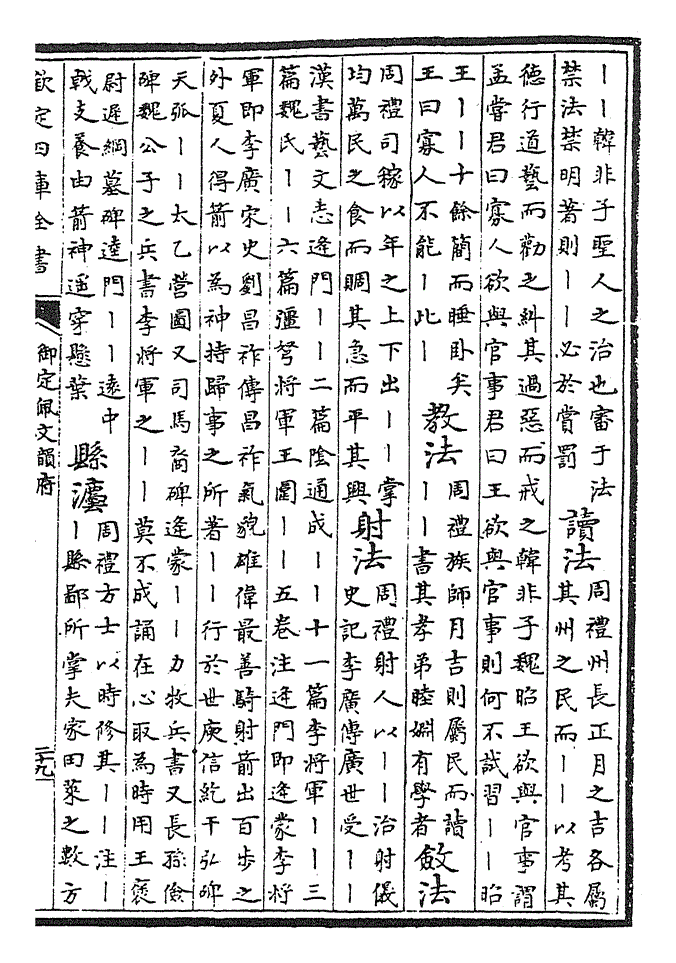 丨丨韓非子聖人之治也審于法
禁法禁明著則丨丨必於賞罰
讀法
周禮州長正月之吉各屬
其州之民而丨丨以考其
德行道藝而勸之糾其過惡而戒之韓非子魏昭王欲與官事謂
孟嘗君曰寡人欲與官事君曰王欲與官事則何不試習丨丨昭
王丨丨十餘簡而睡卧矣
王曰寡人不能丨此丨
教法
周禮族師月吉則屬民而讀
丨丨書其孝弟睦婣有學者
斂法
周禮司稼以年之上下出丨丨掌
均萬民之食而賙其急而平其興
射法
周禮射人以丨丨治射儀
史記李廣傳廣世受丨丨
漢書藝文志逄門丨丨二篇陰通成丨丨十一篇李將軍丨丨三
篇魏氏丨丨六篇彊弩將軍王圍丨丨五卷注逄門即逄蒙李將
軍即李廣宋史劉昌祚傳昌祚氣貌雄偉最善騎射箭出百步之
外夏人得箭以為神持歸事之所著丨丨行於世庾信紇干弘碑
天弧丨丨太乙營圖又司馬裔碑逄蒙丨丨力牧兵書又長孫儉
碑魏公子之兵書李將軍之丨丨莫不成誦在心取為時用王褒
尉遲綱墓碑逵門丨丨遠中
戟支養由箭神遥穿懸葉
縣灋
周禮方士以時修其丨丨注丨
丨縣鄙所掌夫家田萊之數方
欽定四庫全書
御定佩文韻府
二十九